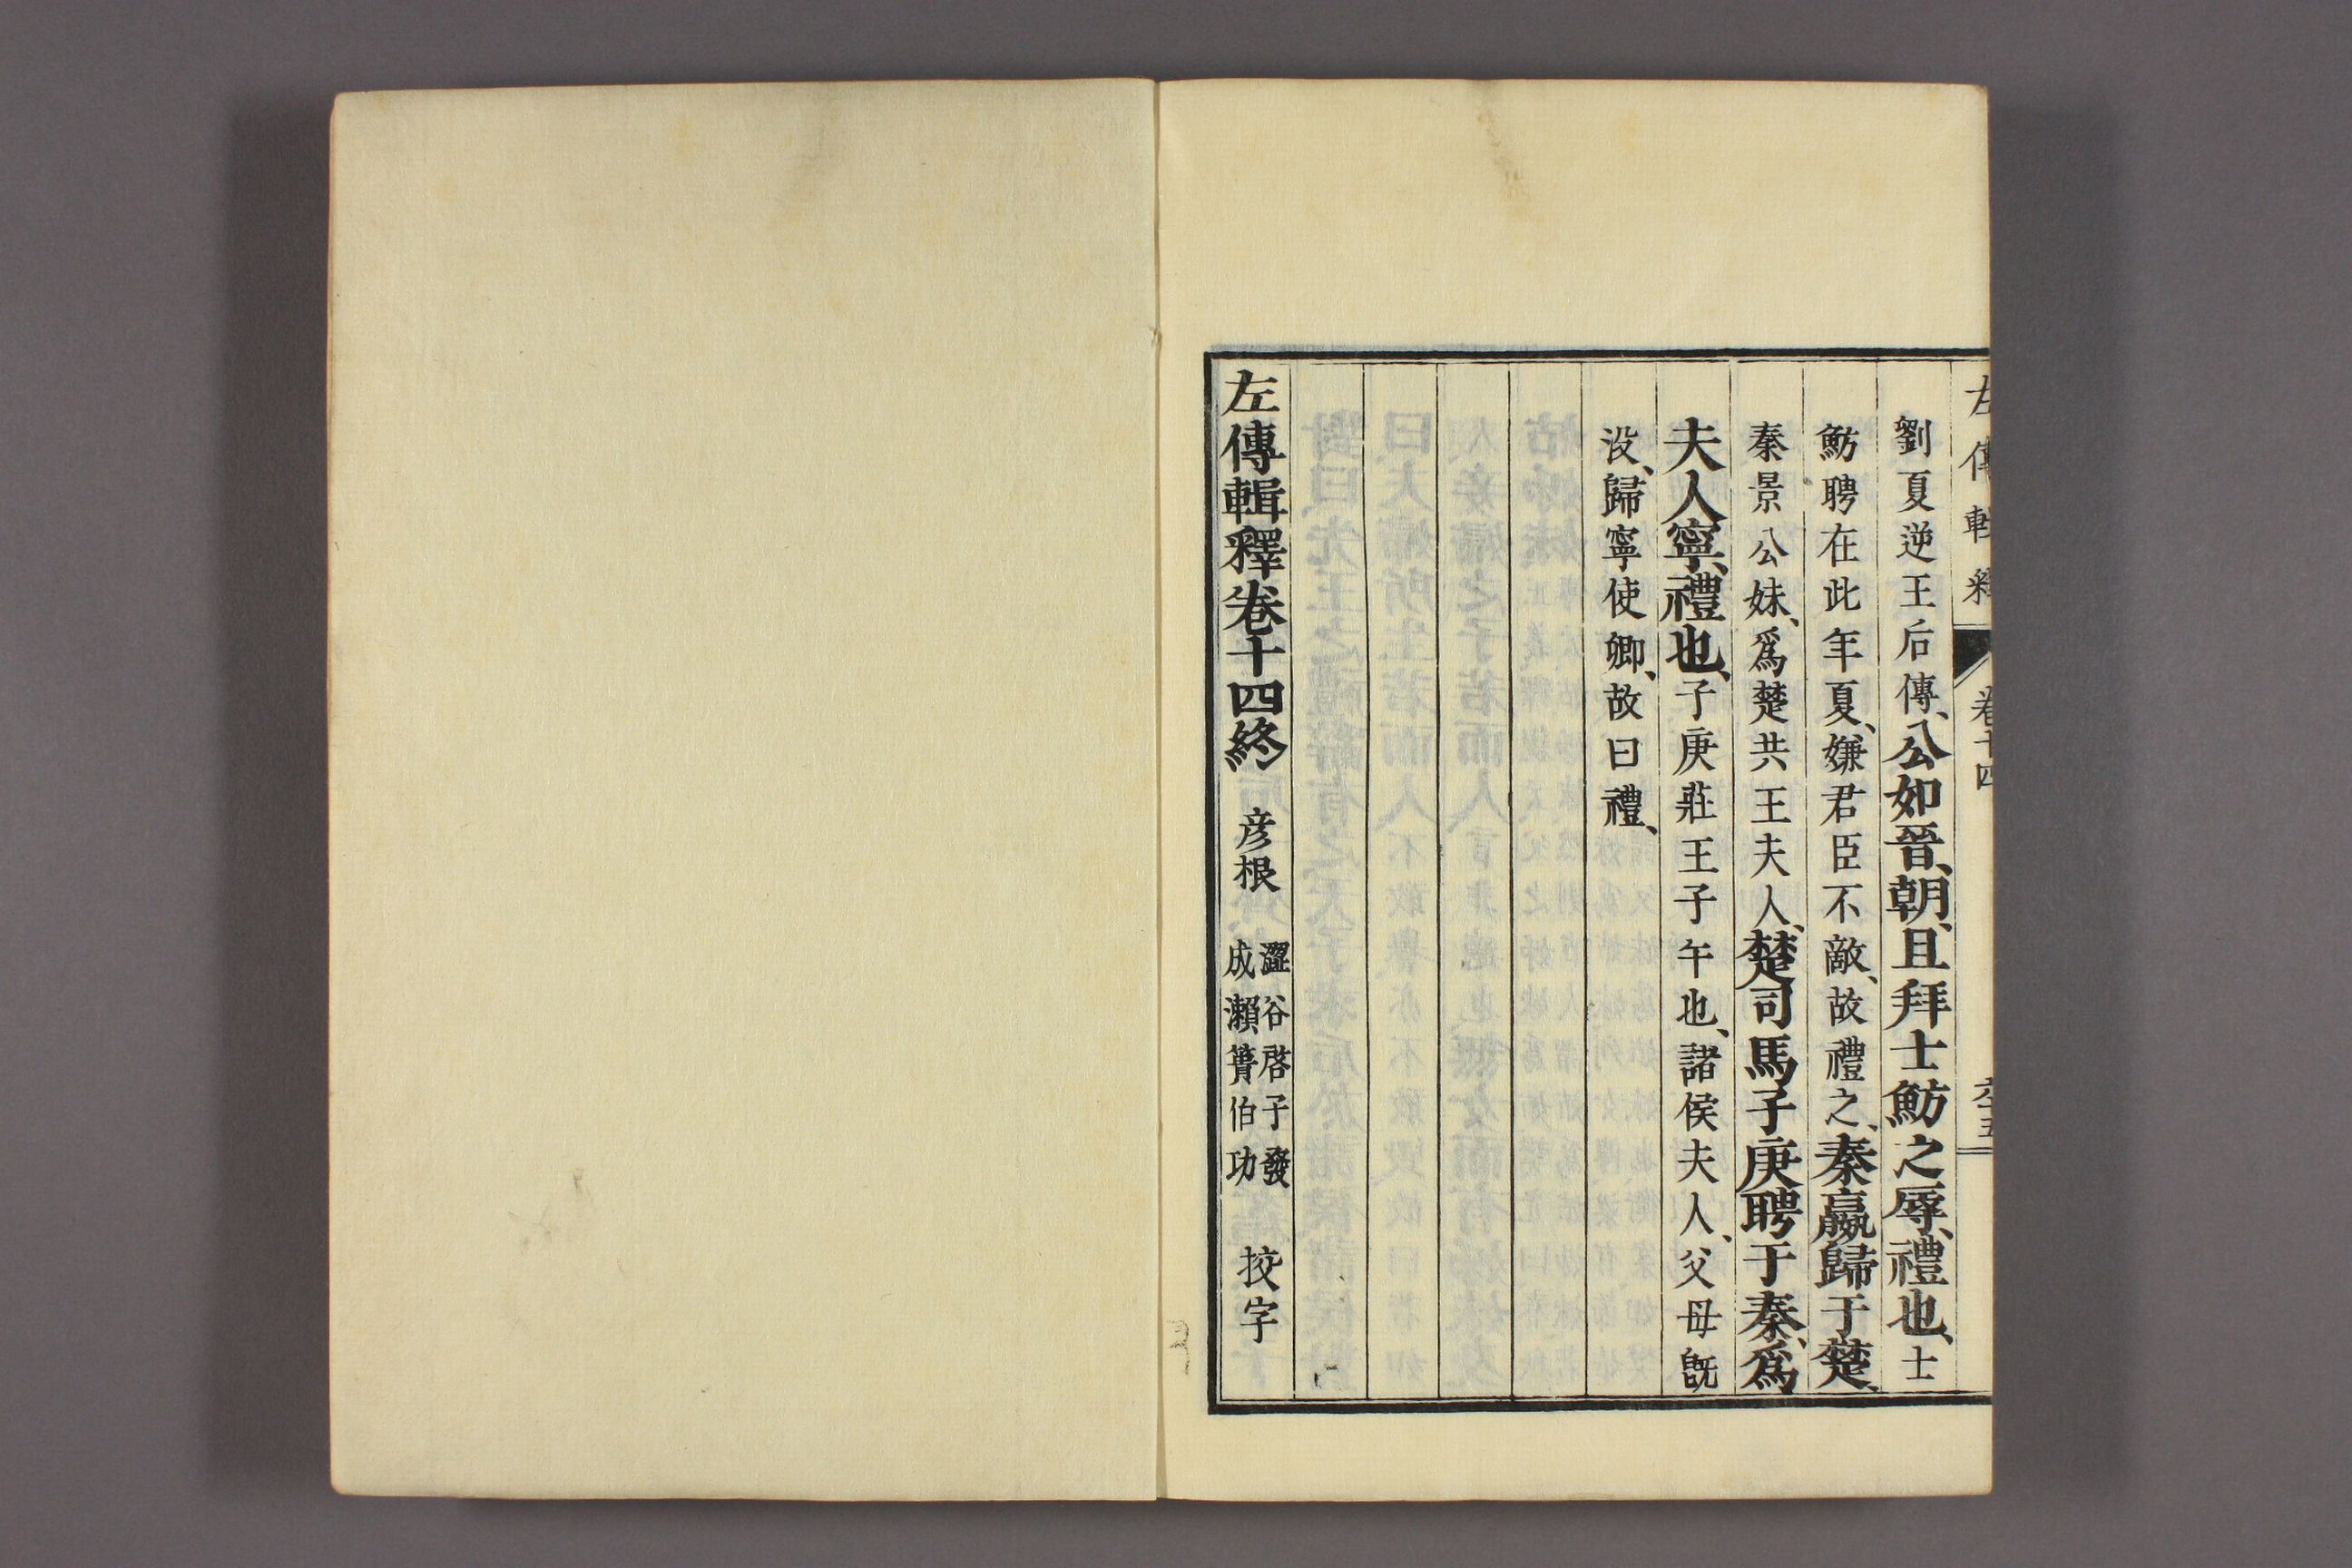 左傳輯釋 卷十四 六十五
劉夏逆王后傳、公如晉、朝、且拜士魴之辱、禮也、士
魴聘在此年夏、嫌君臣不敵、故禮之、秦嬴歸于楚、
秦景公妹、爲楚共王夫人、楚司馬子庚聘于秦、爲
夫人寧、禮也、子庚莊王子午也、諸侯夫人、父母既
没、歸寧使卿、故曰禮、
左傳輯釋卷十四終 彦根 澀谷啓子發 成瀨簣伯功 挍字